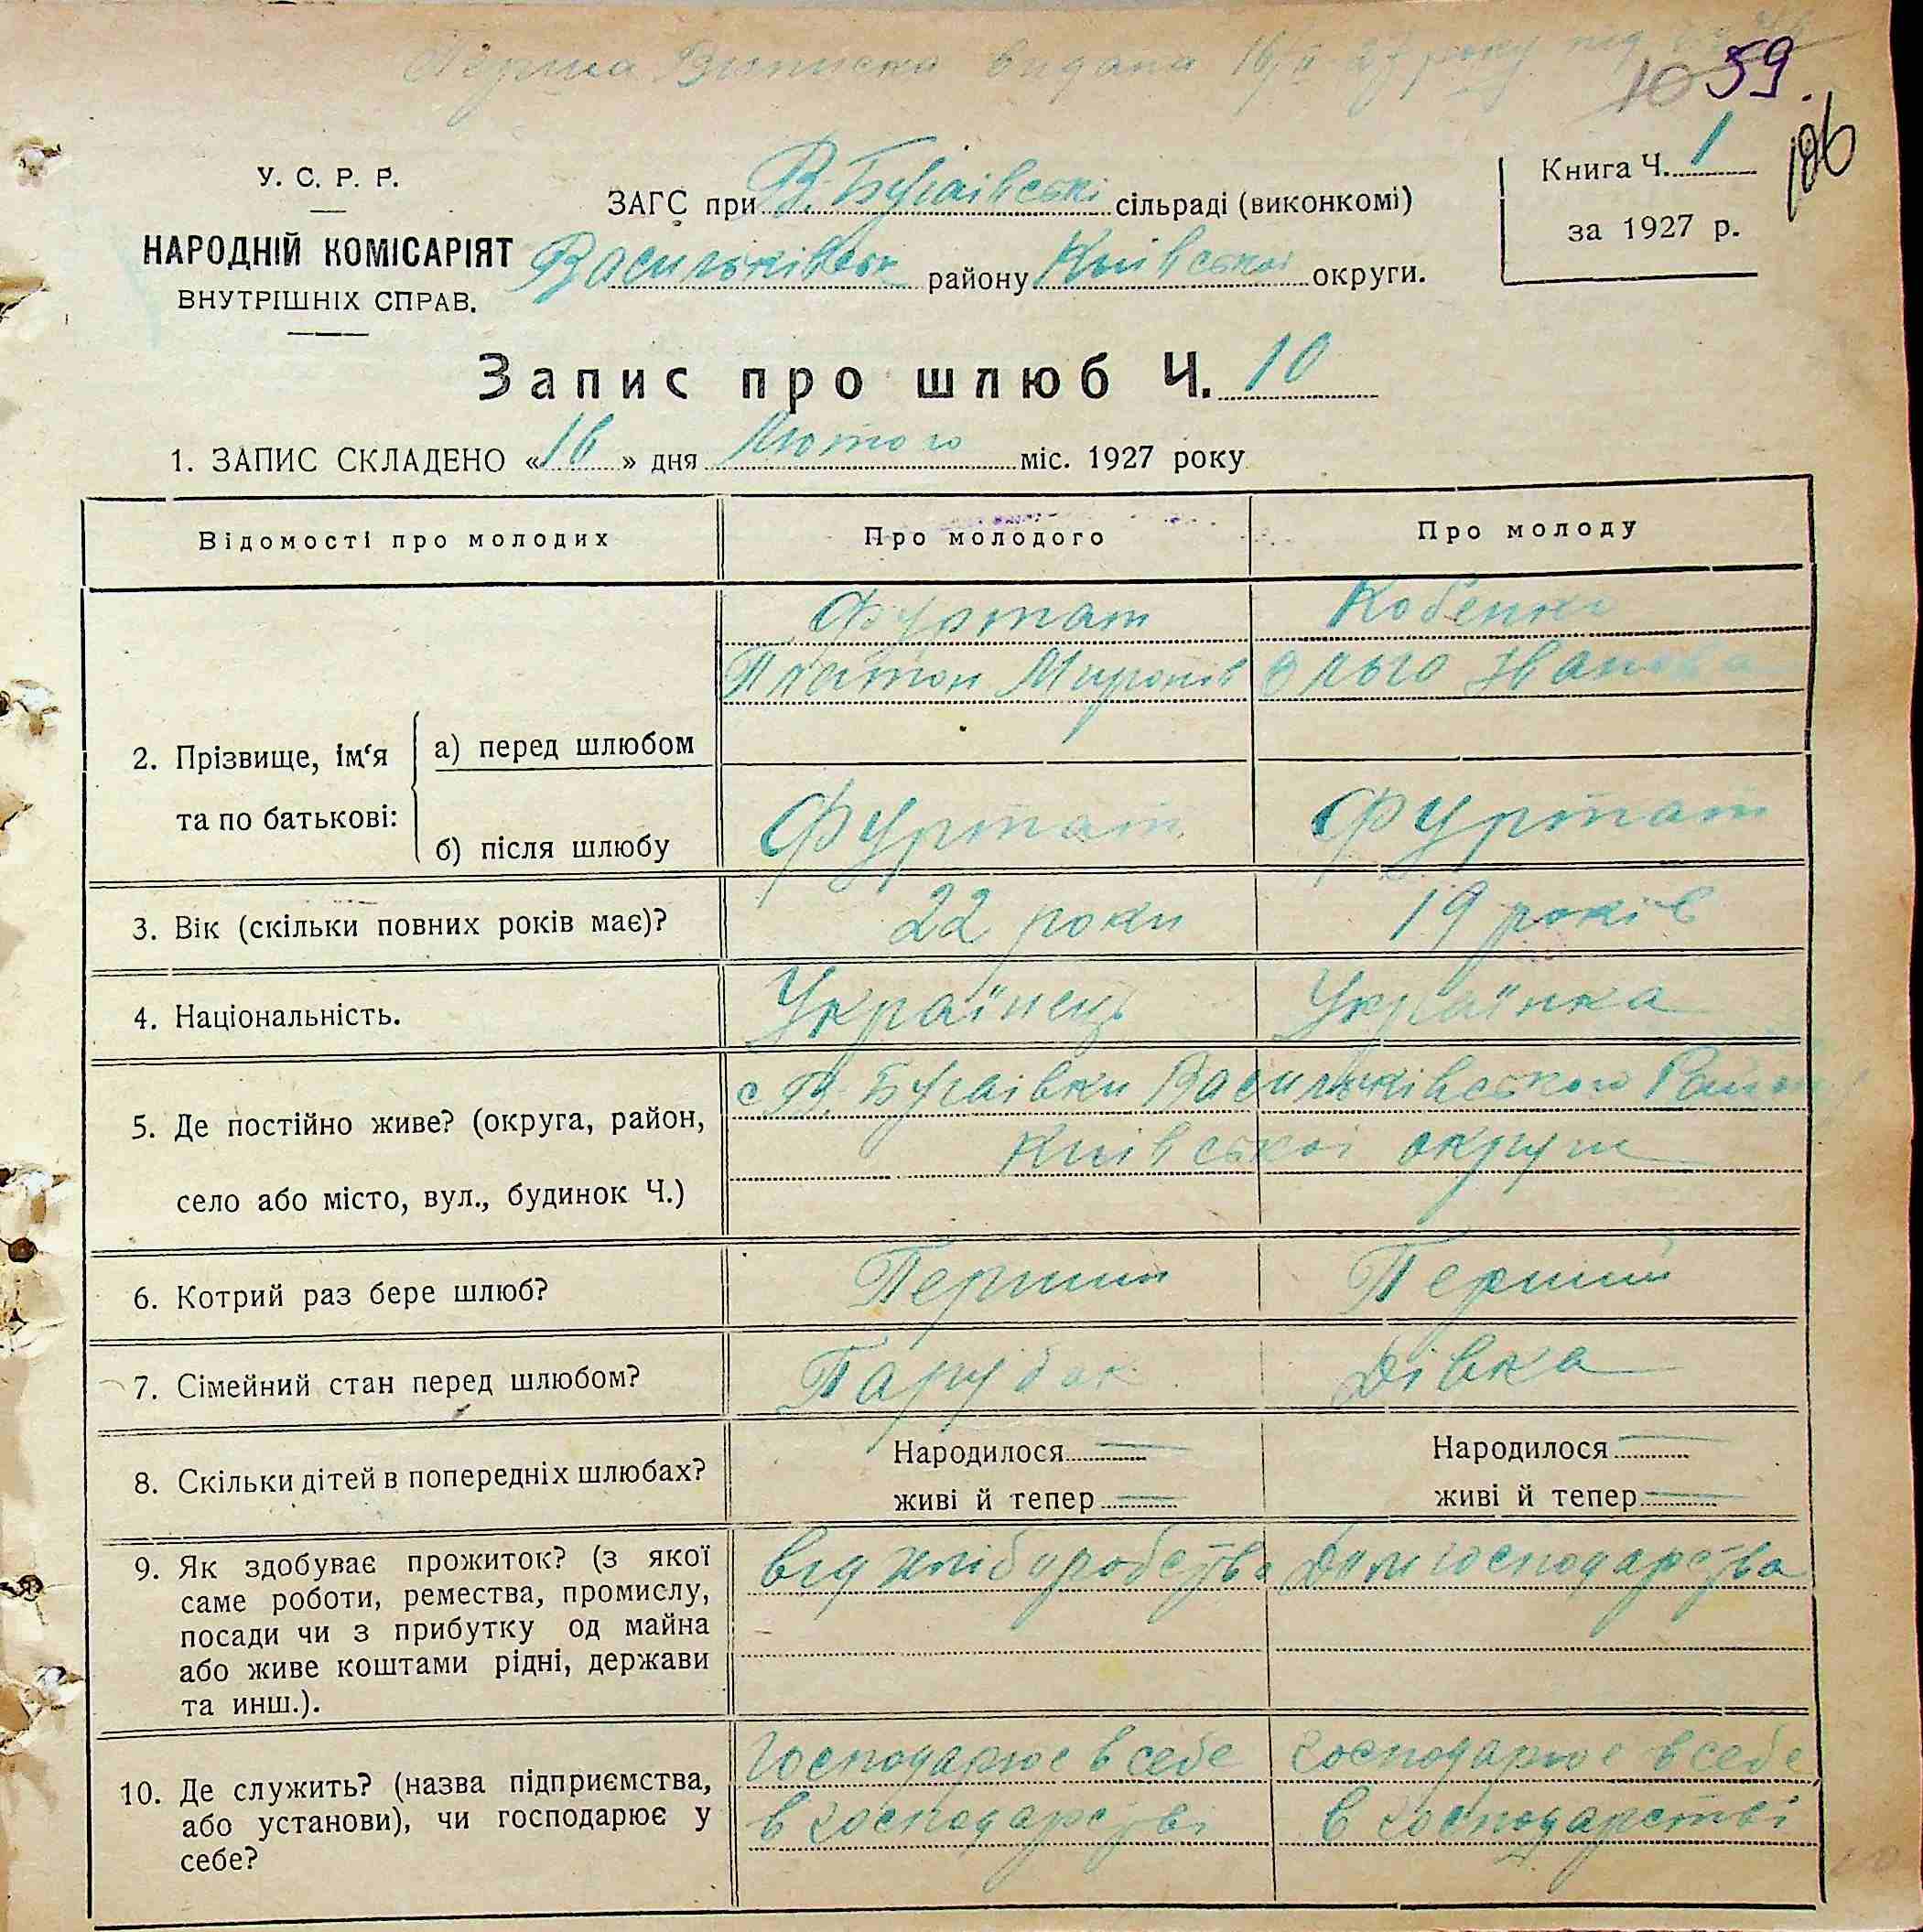 Перша Виписка видана 16/II 27 року під
10 59.
106
У. С. Р. Р.
НАРОДНІЙ КОМІСАРІЯТ
ВНУТРІШНІХ СПРАВ.
ЗАГС при В. Бугаївскі сільраді (виконкомі)
Васильківськ району Київської округи.
Книга Ч. 1
за 1927 р.
Запис про шлюб Ч. 10
1. ЗАПИС СКЛАДЕНО «16» дня Лютого міс. 1927 року
Відомості про молодих Про молодого Про молоду
2. Прізвище, ім‘я та по батькові:
а) перед шлюбом
Фуртат Кобенко
Платон Миронів Ольга Іванова
б) після шлюбу Фуртат Фуртат
3. Вік (скільки повних років має)? 22 роки 19 років
4. Національність. Українець Українка
5. Де постійно живе? (округа, район,
село або місто, вул., будинок Ч.)
с В. Бугаївки Васильківського Району
Київської округи
6. Котрий раз бере шлюб? Перший Перший
7. Сімейний стан перед шлюбом? Парубак Дівка
8. Скільки дітей в попередніх шлюбах? Народилося — Народилося —
живі й тепер — живі й тепер —
9. Як здобуває прожиток? (з якої
саме роботи, ремества, промислу,
посади чи з прибутку од майна
або живе коштами рідні, держави
та инш.).
від хліборобства Дом господарства
10. Де служить? (назва підприємства,
або установи), чи господарює у
себе?
господарює в себе господарює в себе
в господарстві в господарстві